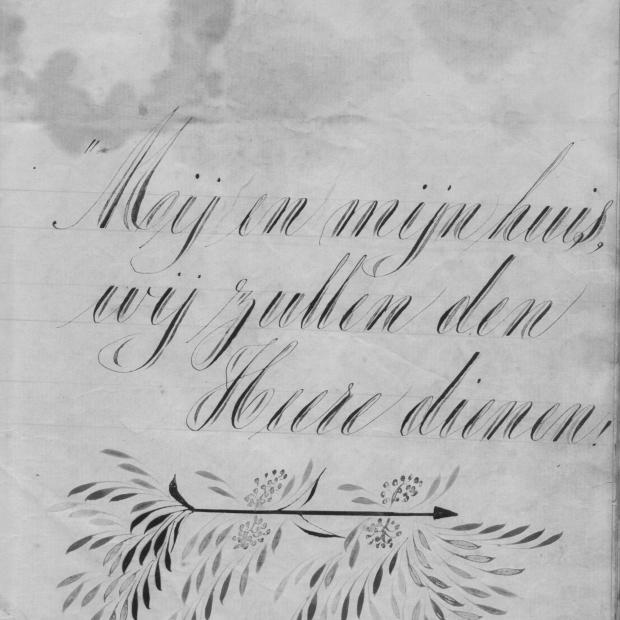 "Mij en mijn huis,
wij zullen den
Heere dienen!